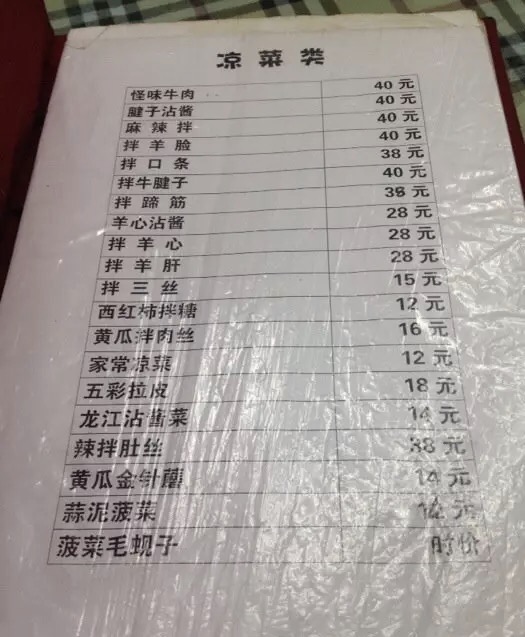 凉菜类
怪味牛肉 40元
腱子沾酱 40元
麻辣拌 40元
拌羊脸 40元
拌口条 38元
拌牛腱子 40元
拌蹄筋 38元
羊心沾酱 28元
拌羊心 28元
拌羊肝 28元
拌三丝 15元
西红柿拌糖 12元
黄瓜拌肉丝 16元
家常凉菜 12元
五彩拉皮 18元
龙江沾酱菜 14元
辣拌肚丝 38元
黄瓜金针蘑 14元
蒜泥菠菜 元
菠菜毛蚬子 时价